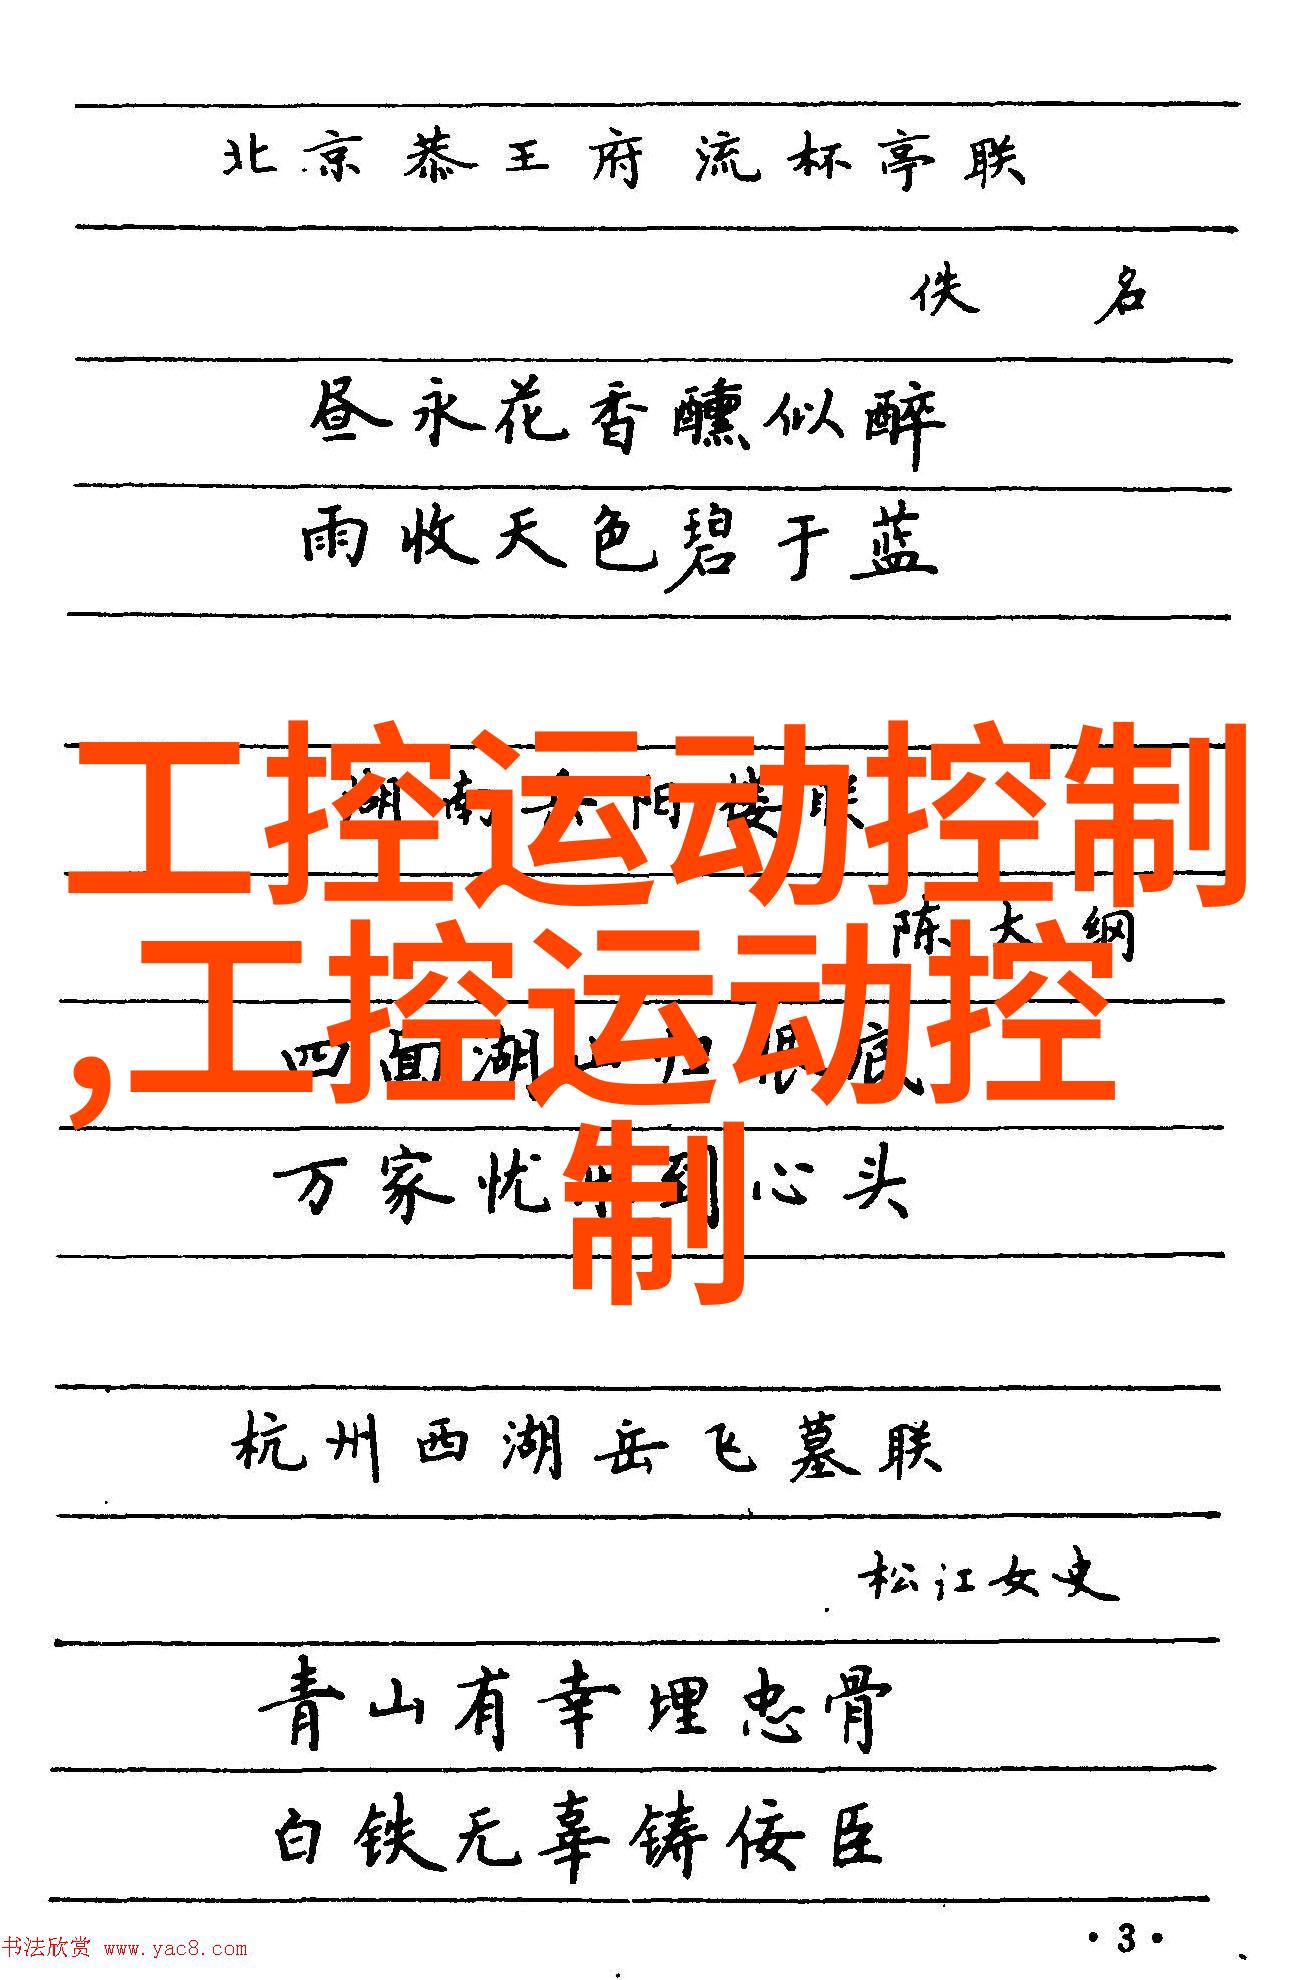 北京恭王府流杯亭联
佚名
昼永花香醺似醉
雨收天色碧于蓝
工控运动控制
湖南岳阳楼联
陈大纲
,工控运动控
四面湖山归眼底
制
万家忧乐到心头
杭州西湖岳飞墓联
松江女史
青山有幸埋忠骨
白铁无辜铸佞臣
·3·
书法欣赏 www.yac8.com